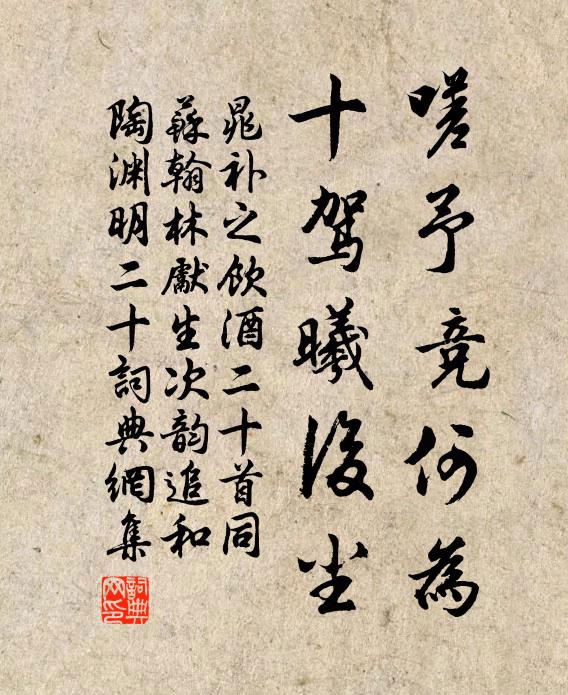 嗟予竟何為
十駕曦後尘
晁补之飲酒二十首同
蘇翰林獻生次韵追和
陶渊明二十詞典網集
詞典网印